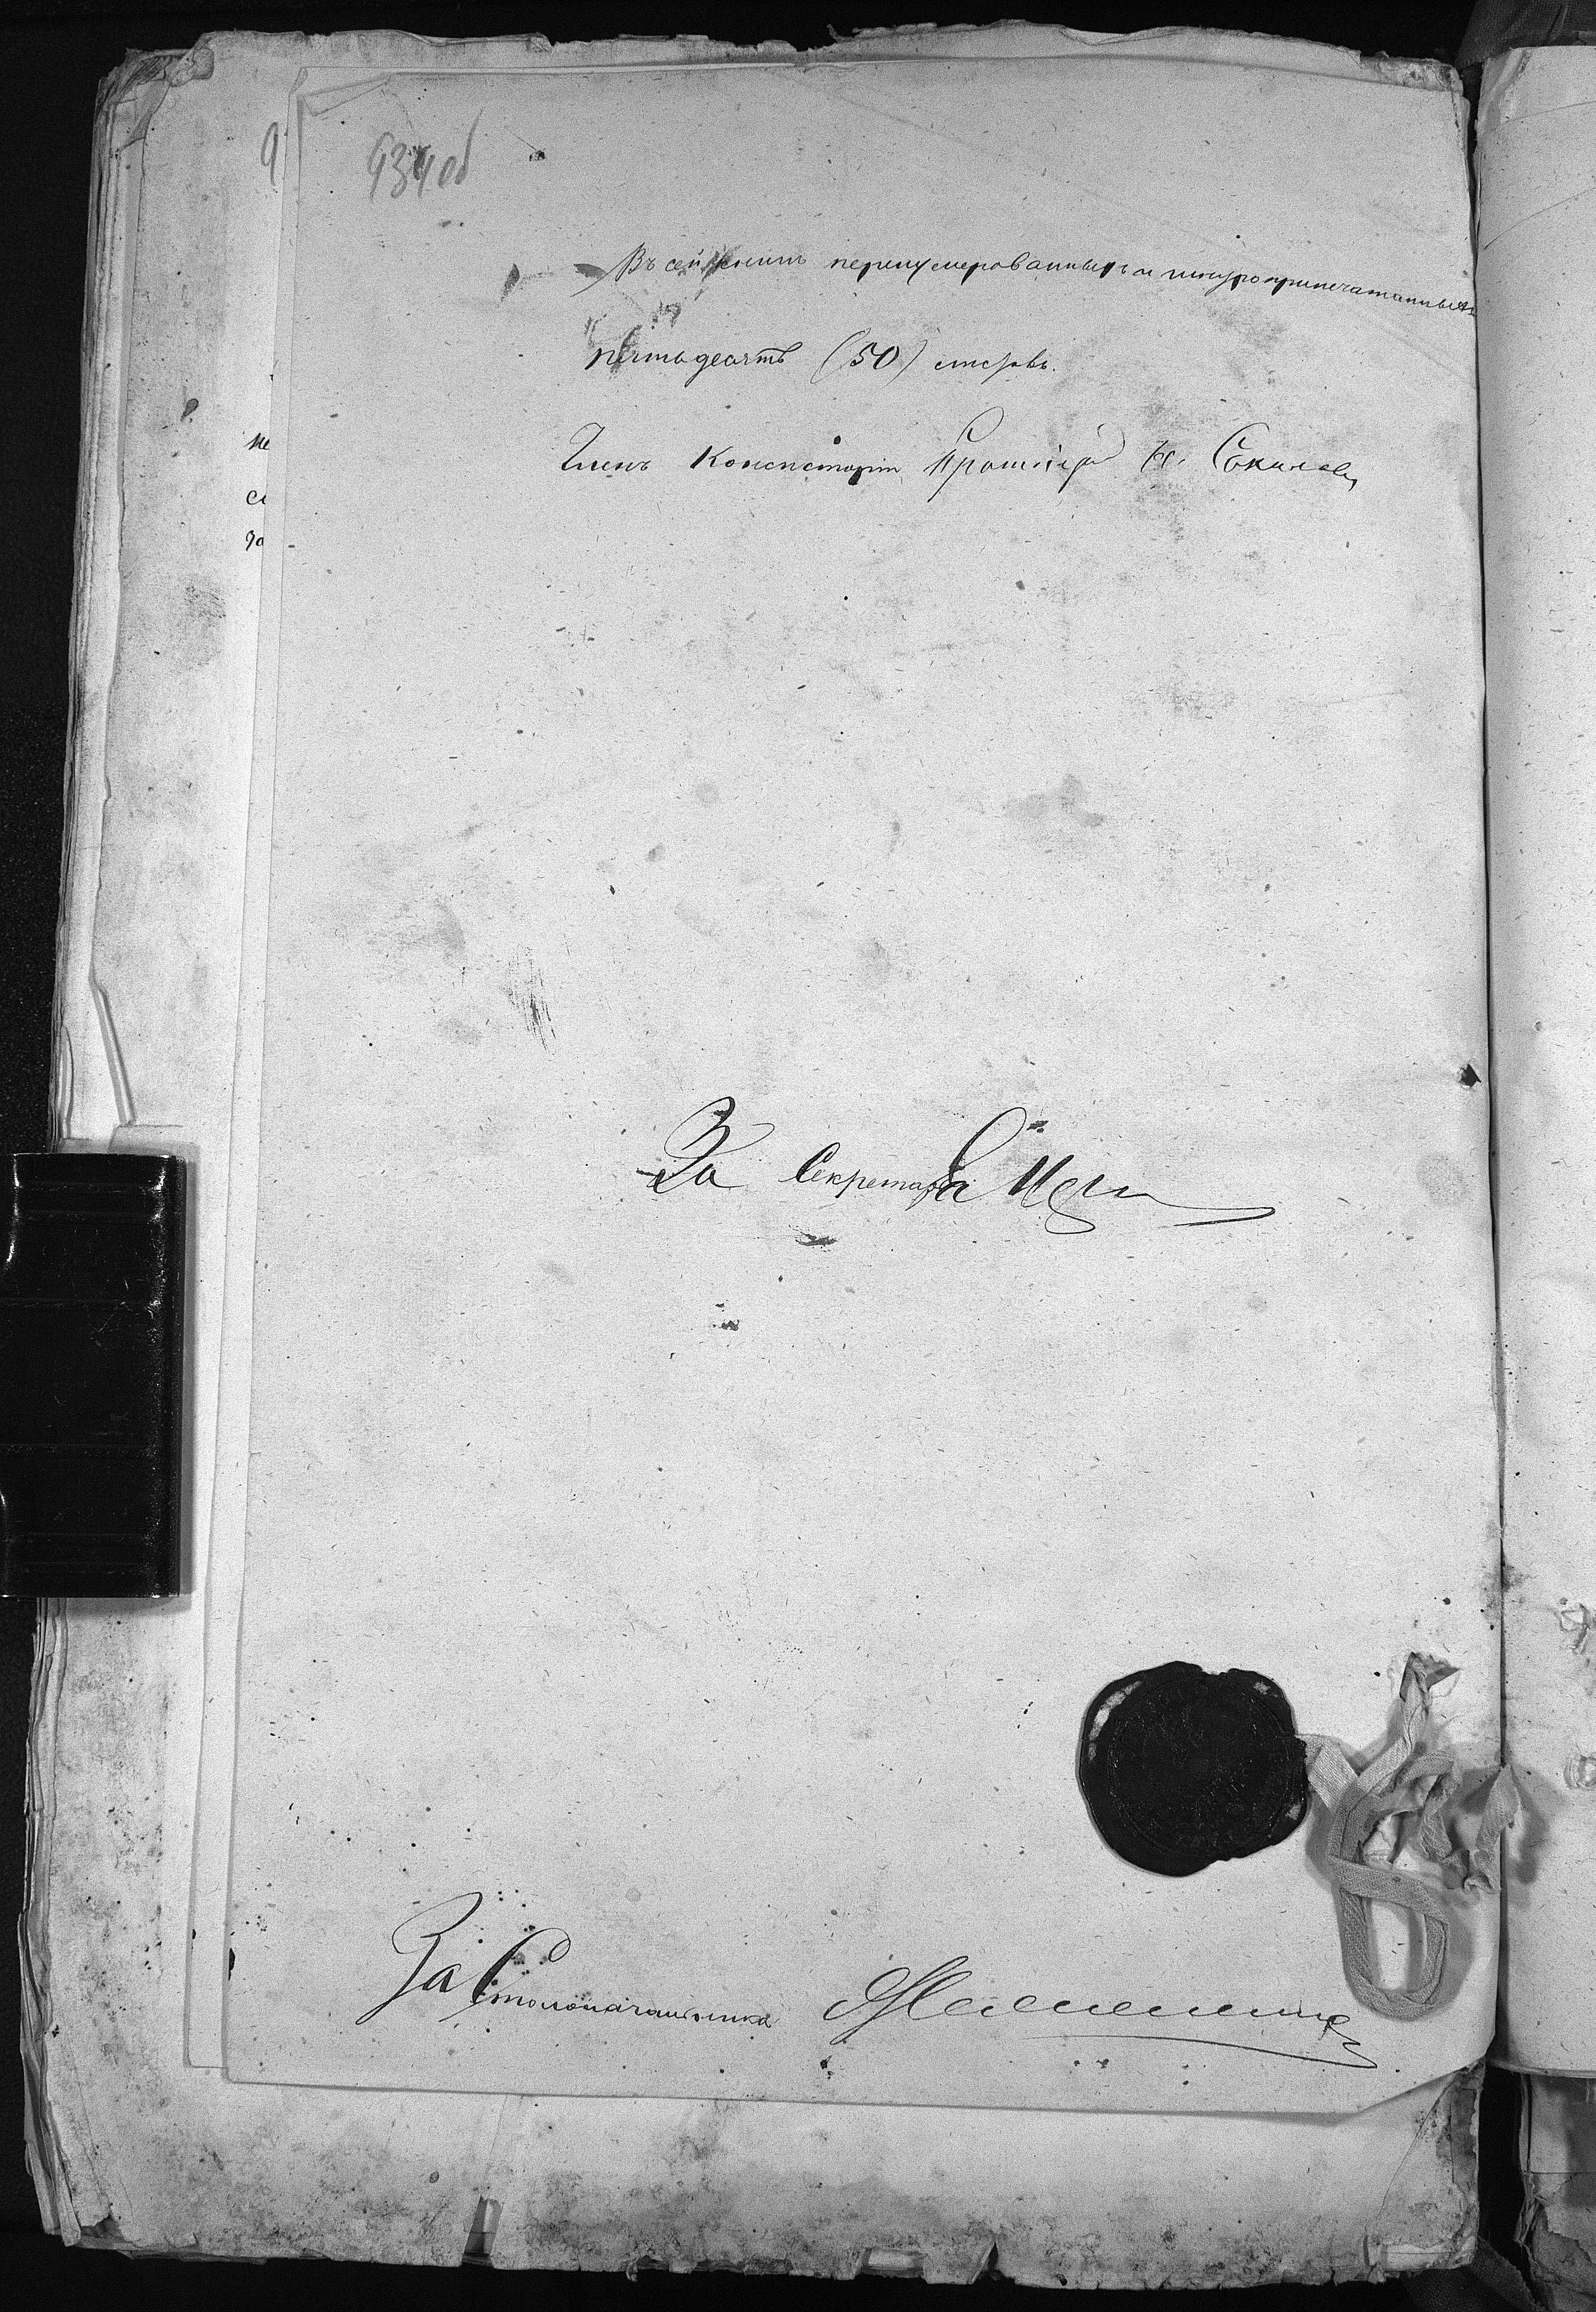 934об
Въ сей книгѣ перенумерованныхъ и шнуроприпечатанныхъ
пятьдесятъ (50) листовъ.
Членъ Консисторіи Протоіерей Соколовъ
За Секретаря
За Столоначальника
не